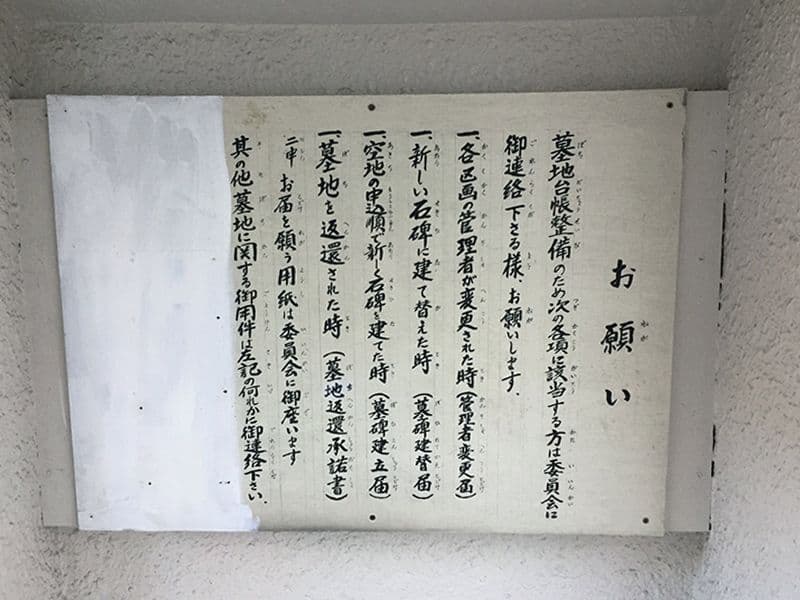 お願い
墓地台帳整備のため次の各項に該当する方は委員会に
御連絡下さる様、お願いします。
一、各区画の管理者が変更された時(管理者変更届)
一、新しい石碑に建て替えた時(墓碑建替届)
一、空地の申込順で新しく石碑を建てた時(墓碑建立届)
一、墓地を返還された時(墓地返還承諾書)
お届を願う用紙は委員会に御座います
其の他墓地に関する御用件は左記の何れかに御連絡下さい。